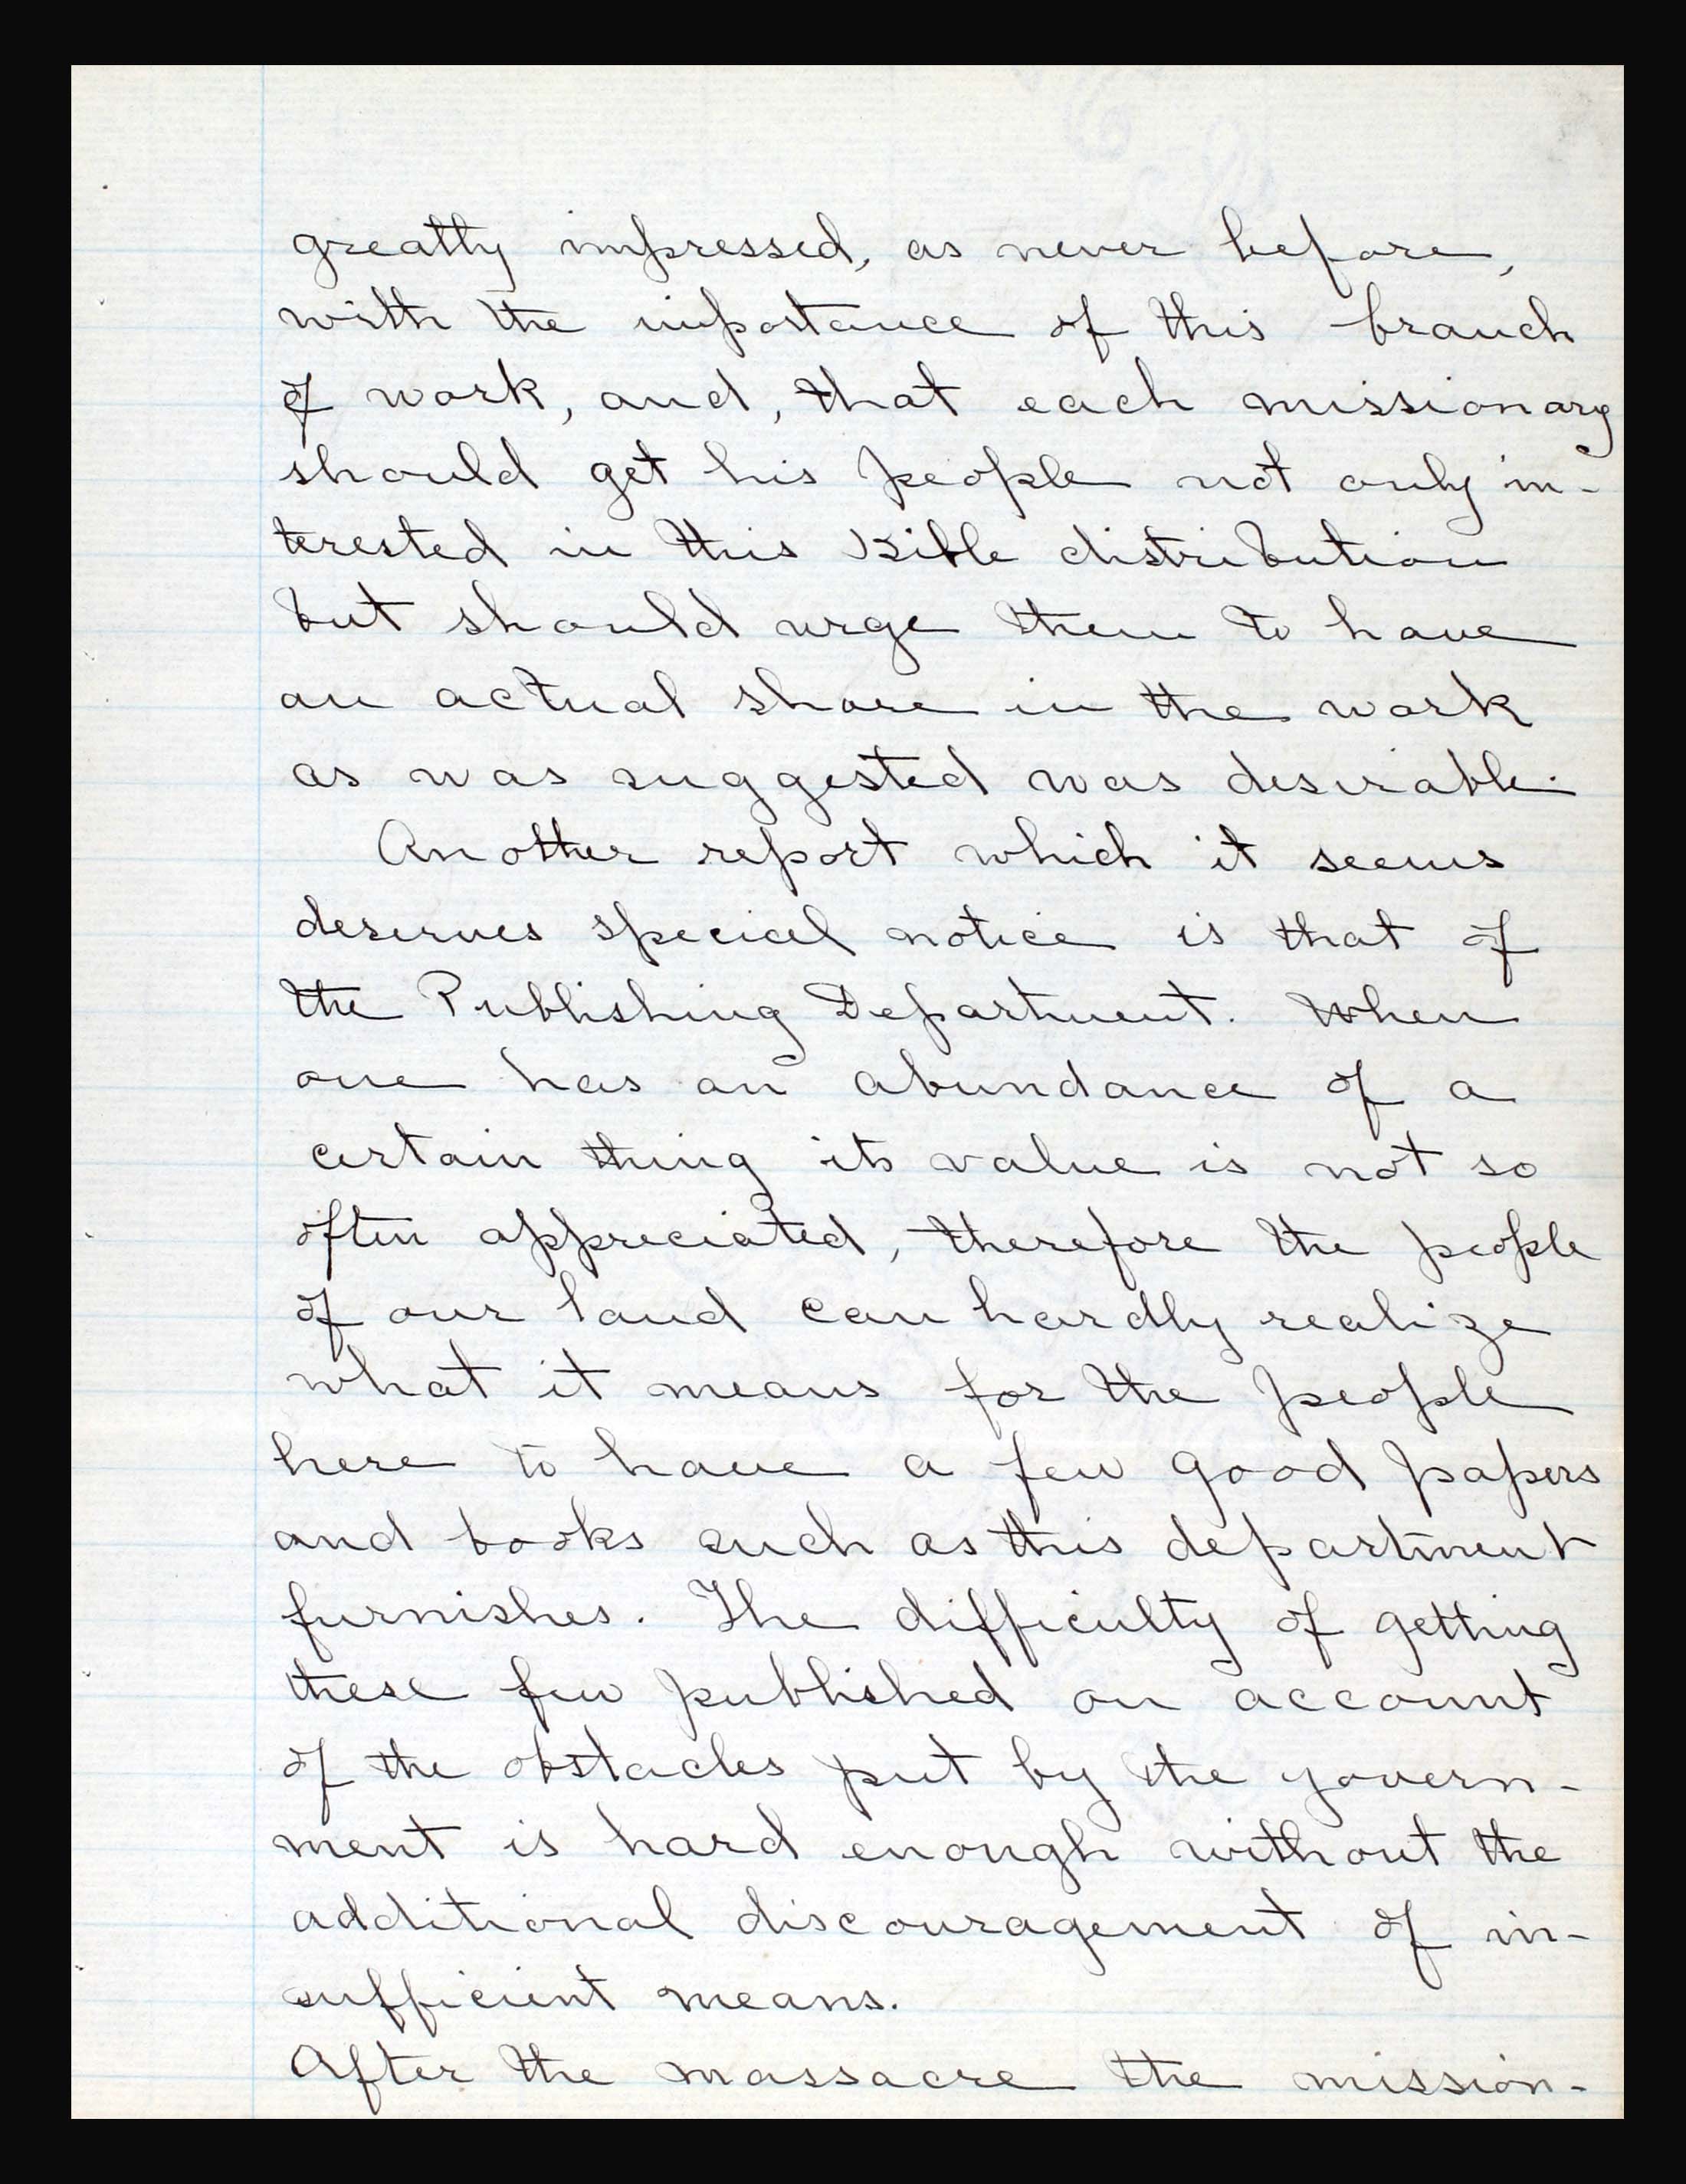 greatly impressed, as never before,
with the importance of this branch
of work, and, that each missionary
should get his people not only in-
terested in this Bible distribution
but should urge them to have
an actual share in the work
as was suggested was desirable.
Another report which it seems
deserves special notice is that of
the Publishing Department. When
one has an abundance of a
certain thing its value is not so
often appreciated, therefore the people
of our land can hardly realize
what it means for the people
here to have a few good papers
and books such as this department
furnishes. The difficulty of getting
these few published on account
of the obstacles put by the govern-
ment is hard enough without the
additional discouragement of in-
sufficient means.
After the massacre the mission-